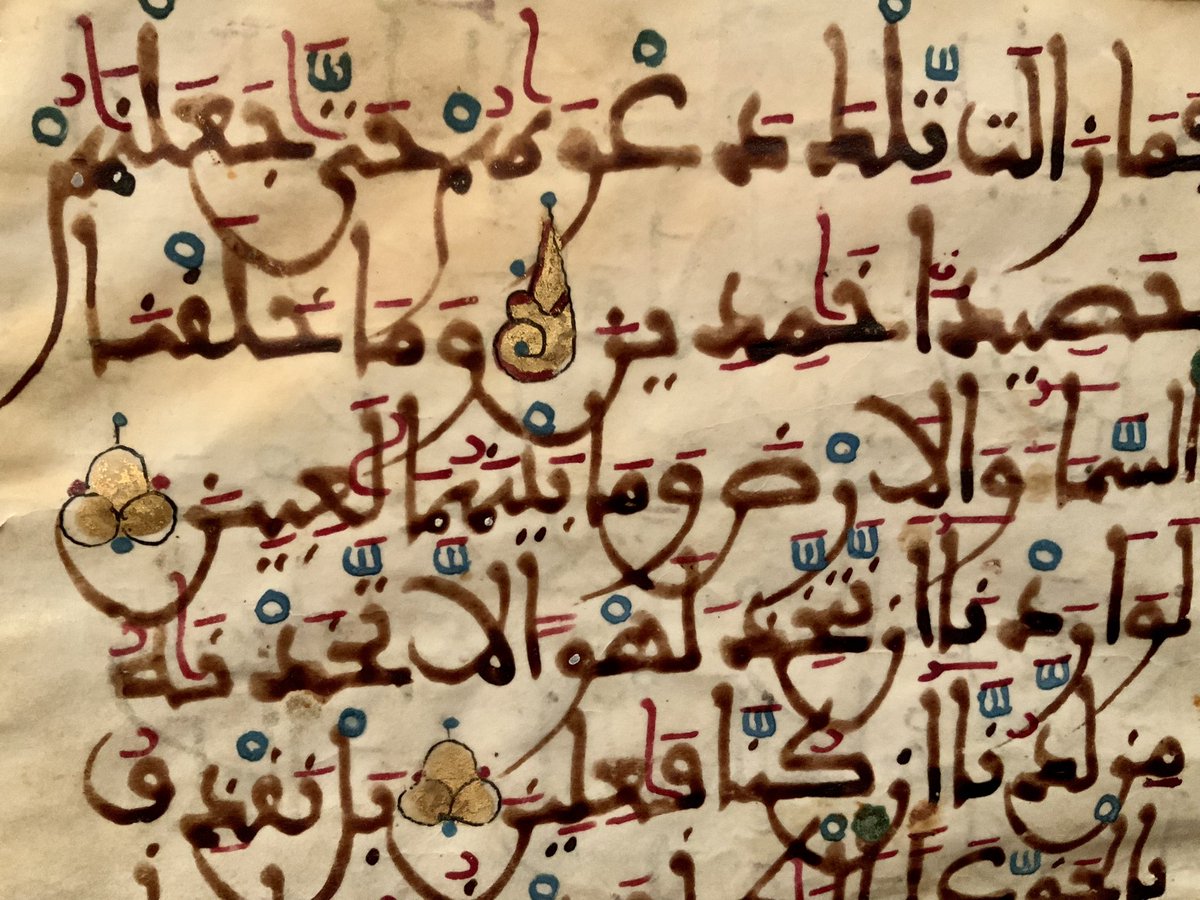 فما زالت تلك دعويهم حتى جعلنهم
حصيدا خمدين وما خلقنا
السما والارض وما بينهما لعبين
لو اردنا ان نتخذ لهوا لاتخذنه
من لدنا ان كنا فعلين بل نقذف
بالحق